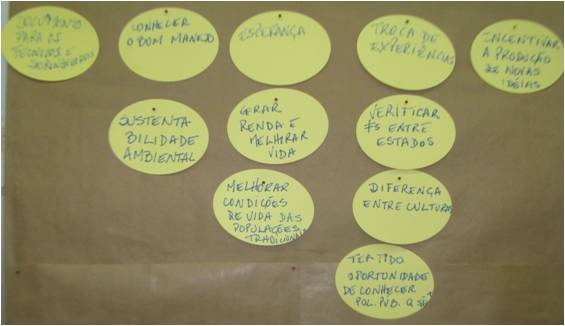 DOCUMENTO
PARA OS
TÉCNICOS E
SERINGUEIROS
CONHECER
O BOM MANEJO
ESPERANÇA
TROCA DE
EXPERIÊNCIAS
INCENTIVAR
A PRODUÇÃO
DE NOVAS
IDÉIAS
SUSTENTA
BILIDADE
AMBIENTAL
GERAR
RENDA E
MELHORAR
VIDA
VERIFICAR
≠S ENTRE
ESTADOS
MELHORAR
CONDIÇÕES
DE VIDA DAS
POPULAÇÕES
TRADICIONAIS
DIFERENÇA
ENTRE CULTURAS
TER TIDO
OPORTUNIDADE
DE CONHECER
POL. PUB. Q